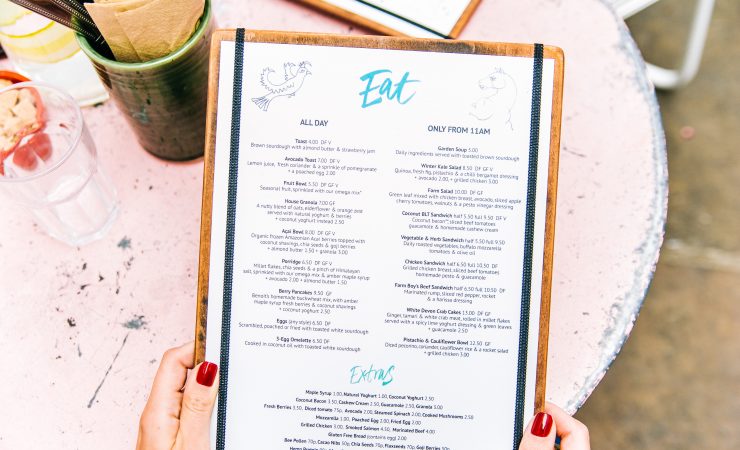 Eat
ALL DAY
Toast 4.00 DF V
Brown sourdough with almond butter & strawberry jam
Avocado Toast 7.00 DF V
Lemon juice, fresh coriander & a sprinkle of pomegranate
+ a poached egg 2.00
Fruit Bowl 5.50 DF GF V
Seasonal fruit, sprinkled with our omega mix
House Granola 7.00 GF
A nutty blend of oats, elderflower & orange peel
served with natural yoghurt & berries
+ coconut yoghurt instead 2.50
Açai Bowl 8.00
Organic frozen Amazonian Acai berries topped with
coconut shavings, chia seeds & goji berries
+ almond butter 1.50 + granola 3.00
Porridge 6.50 DF GF V
Millet flakes, chia seeds & a pinch of Himalayan
salt, sprinkled with our omega mix & amber maple syrup
+ avocado 2.00 + almond butter 1.50
Berry Pancakes 9.50 GF
Benoît's homemade buckwheat mix, with amber
maple syrup fresh berries & coconut shavings
+ coconut yoghurt 2.50
Eggs (any style) 6.50 DF
Scrambled, poached or fried with toasted white sourdough
3-Egg Omelette 6.50 DF
Cooked in coconut oil with toasted white sourdough
ONLY FROM 11AM
Garden Soup 5.00
Daily ingredients served with toasted brown sourdough
Winter Kale Salad 8.50 DF V
Quinoa, fresh fig, pistachio & a chili bergamot dressing
+ avocado 2.00, + grilled chicken 3.00
Farm Salad 10.00 DF GF
Green leaf mixed with chicken breast, avocado, sliced apple
cherry tomatoes, walnuts & a pesto vinegar dressing
Coconut BLT Sandwich half 5.50 full 9.50 DF V
Coconut bacon, sliced beef tomatoes
guacamole & homemade cashew cream
Vegetable & Herb Sandwich half 5.50 full 9.50
Daily roasted vegetables, buffalo mozzarella
tomatoes & olive oil
Chicken Sandwich half 6.50 full 10.50 DF
Grilled chicken breast, sliced beef tomatoes
homemade pesto & guacamole
Farm Boy's Beef Sandwich half 6.50 full 10.50 DF
Marinated rump, sliced red pepper, rocket
& a harissa dressing
White Devon Crab Cakes 13.00 DF GF
Ginger, tamari & white crab meat, rolled in millet flakes
served with a spicy lime yoghurt dressing & green leaves
+ guacamole 2.50
Pistachio & Cauliflower Bowl 12.50 GF
Diced pecorino, coriander, cauliflower rice & a rocket salad
+ grilled chicken 3.00
Extras
Maple Syrup 1.00, Natural Yoghurt 1.00, Coconut Yoghurt 2.50
Coconut Bacon 2.50, Cashew Cream 2.50, Guacamole 2.50, Granola 3.00
Fresh Berries 3.50, Diced tomato 70p, Avocado 2.00, Steamed Spinach 2.00, Cooked Mushrooms 2.50
Mozzarella 1.00, Poached Egg 2.00, Fried Egg 2.00
Grilled Chicken 3.00, Smoked Salmon 4.50, Marinated Beef 4.00
Gluten Free Bread (contains egg) 2.00
Bee Pollen 70p, Cacao Nibs 50p, Chia Seeds 70p, Flaxseeds 70p, Goji Berries 50p